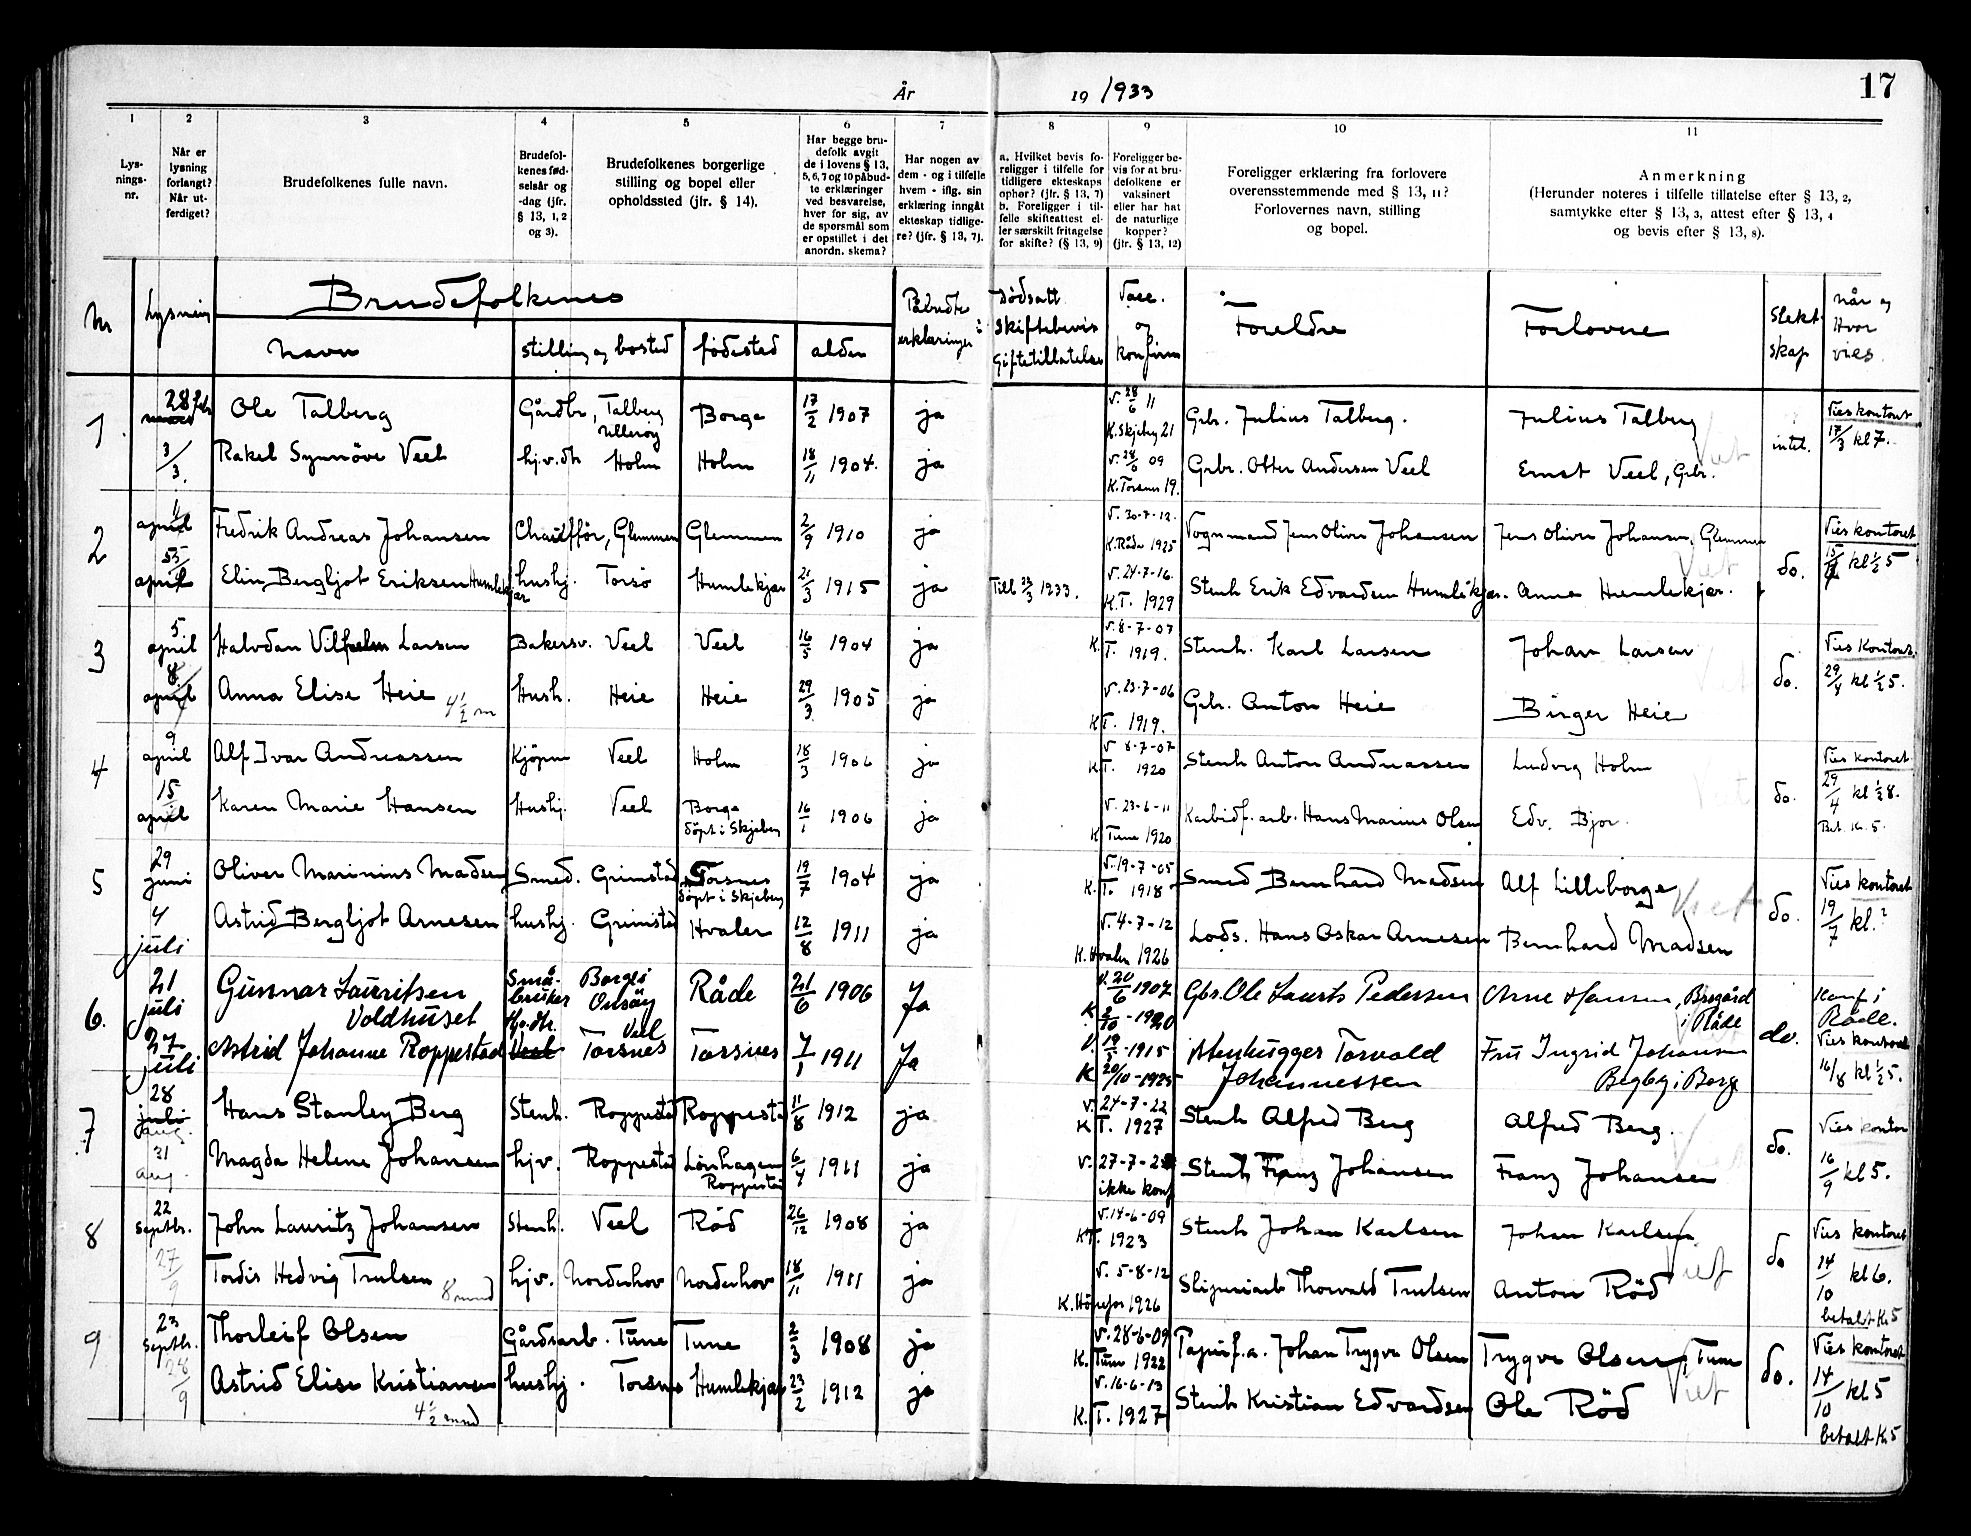 17
År 19 1933
1 2 3 4 5 6 7 8 9 10 11
Lys-
nings-
nr.
Når er
lysning
forlangt?
Når ut-
ferdiget?
Brudefolkenes fulle navn.
Brudefol-
kenes fød-
selsår og
-dag (jfr.
§ 13, 1, 2
og 3).
Brudefolkenes borgerlige
stilling og bopel eller
opholdssted (jfr. § 14).
Har begge bru-
defolk avgit
de i lovens § 13,
5, 6, 7 og 10 påbud-
te erklæringer
ved besvarelse,
hver for sig, av
de spørsmål som
er opstillet i det
anordn. skema?
Har nogen av
dem - og i tilfelle
hvem - iflg. sin
erklæring inngått
ekteskap tidlige-
re? (jfr. § 13, 7).
a. Hvilket bevis fo-
religger i tilfelle for
tidligere ekteskaps
ophør? (jfr. § 13, 7)
b. Foreligger i til-
felle skifteattest el-
ler særskilt fritagelse
for skifte? (§ 13, 9)
Foreligger be-
vis for at bru-
defolkene er
vaksinert
eller har hat
de naturlige
kopper?
(jfr. § 13, 12)
Foreligger erklæring fra forlovere
overensstemmende med § 13, 11?
Forlovernes navn, stilling
og bopel.
Anmerkning
(Herunder noteres i tilfelle tillatelse efter § 13, 2,
samtykke efter § 13, 3, attest efter § 13, 4
og bevis efter § 13, 8).
Nr Lysning Brudefolkenes
navn stilling og bosted fødested alder
Påbudte
erklæringer
Dødsatt
Skiftebevis
Giftetillatelse
Vacc.
og
konfirm
Foreldre Forlovere
Slekt
skap
når og
Hvor
vies.
1 28 feb Ole Talberg Gårdbr, Talberg Ullerøy Borge 17/2 1907 ja V. 28/6 11 K. Skjeberg 21 Grbr. Julius Talberg. Julius Talberg intet. Vies kontoret 17/3 kl 7.
3/3. Rakel Synnöve Veel hj.v.dtr Holm Holm 18/11 1904. ja V. 28/6 09 K. Torsnes 19. Grbr. Otter Andersen Veel Ernst Veel, Grbr. Viet
2 april Fredrik Andreas Johansen Chauffför, Glemmen Glemmen 2/9 1910 ja V. 30-7-12. K. Råde 1925 Vognmand Jens Oliver Johansen Jens Oliver Johansen, Glemmen do. Vies kontoret kl ½ 5
april Elin Bergljot Eriksen Humlekjær hushj. Torsö Humlekjær 21/3 1915 ja Till 23/3 1933. V. 24-7-16. K.T. 1929 Stenh Erik Edvardsen Humlekjær. Anna Humlekjær. Viet
3 5 april Halvdan Vilhelm Larsen Bakersv. Veel Veel 16/5 1904 ja V. 8-7-07 K. T. 1919. Stenh. Karl Larsen Johan Larsen do. Vies Kontoret. 29/4 kl ½ 5.
8 april Anna Elise Heie 4½ m Hush. Heie Heie 29/3 1905 ja V. 23-7-06 K T. 1919. Grbr. Anton Heie Birger Heie Viet
4 9 april Alf Ivar Andreassen Kjöpm Veel Holm 18/3 1906 ja V 8-7-07 K T. 1920 Stenh Anton Andreassen Ludvig Holm do. Vies kontoret 29/4 kl ½ 8.
15 april Karen Marie Hansen Hushj. Veel Borge döpt i Skjeberg 16/1 1906 ja V. 23-6-11 K Tune 1920 Karbidf. arb. Hans Marius Olsen Edv. Bjor. Viet Bet. K. 5.
5 29 juni Oliver Marinius Madsen Smed. Grimstad Torsnes döpt i Skjeberg 19/7 1904 ja V. 19-7-05 K. T. 1918 Smed Bernhard Madsen Alf Lilleborge do. Vies kontoret 19/7 kl. ?
4 juli Astrid Bergljot Arnesen hushj. Grimstad Hvaler 12/8 1911 ja V. 4-7-12 K. Hvaler 1926 Lods. Hans Oskar Arnesen Bernhard Madsen Viet
6. 21 juli Gunnar Lauritsen Voldhuset Små-bruker Borge i Onsöy Råde 21/6 1906 Ja V. 20/6 1907 K 2/10 - 1920 Gbr. Ole Laurits Pedersen Arne Hansen, Brogård i Råde do. Konf i Råde. Vies kontoret
27 juli Astrid Johanne Roppestad Hj.dtr. Veel Torsnes Torsnes 7/1 1911 Ja V. 19/5 - 1915 K 20/10 - 1925 Stenhugger Torvald Johannessen Fru Ingrid Johansen Begby i Borge 16/8 kl ½ 5.
7 28 juli aug. Hans Stanley Berg Stenh. Roppestad Roppestad 11/8 1912 ja V. 24-7-22 K T. 1927 Stenh Alfred Berg Alfred Berg. do. Vies kontor
31 Aug. Magda Helene Johansen hjv. Roppestad Lönhagen Roppestad 6/4 1911 ja V. 27-7-2 ikke konf Stenh Franz Johansen Franz Johansen Viet 16/9 kl 5.
8 22 Septbr. John Lauritz Johansen Stenh. Veel Röd 26/12 1908 ja V. 14-6-09 KT. 1923 Stenh Johan Karlsen Johan Karlsen do Vies kontoret
27/9 Tordis Hedvig Trulsen 8 mnd hjv. Norderhov Norderhov 18/11 1911 ja V. 5-8-12 K. Hönefos 1926 Sliperiarb Thorvald Trulsen Anton Röd Viet 14/10 kl 6. betalt K. 5
9 23 Septbr. Thorleif Olsen Gårdsarb. Tune Tune 2/3 1908 ja V. 28-6-09 K. Tune 1922 Papirf. a. Johan Trygve Olsen Trygve Olsen, Tune do. Vies kontoret
28/9 Astrid Elise Kristiansen 4½ mnd hushj. Torsnes Humlekjær 23/2 1912 ja V. 16-6-13 K. T. 1927 Stenh Kristian Edvardsen Ole Röd Viet 14/10 kl 5 betalt K. 5